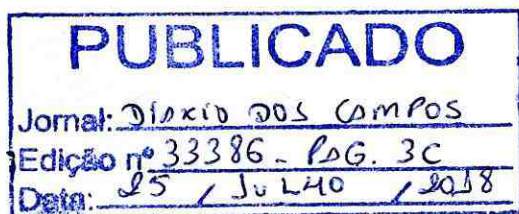 PUBLICADO
Jornal: DIÁRIO DOS CAMPOS
Edição nº 33386 - PÁG. 3C
Data: 25 / JULHO / 2018